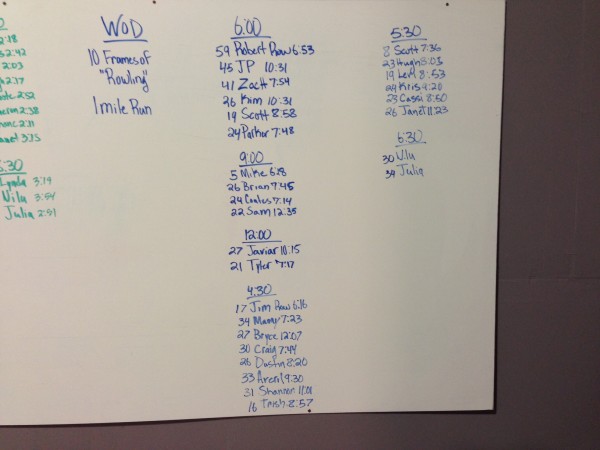 2:18
2:42
2:03
2:17
2:52
2:38
2:11
3:15
:30
Lynda 3:14
Nilu 3:54
Julia 2:51
WOD
10 Frames of
"Rowling"
1 mile Run
6:00
59 Robert Row 6:53
45 JP 10:31
41 Zach 7:54
26 Kim 10:31
19 Scott 8:58
24 Parker 7:48
9:00
5 Mike 6:18
26 Brian 7:45
29 Coates 7:14
22 Sam 12:35
12:00
27 Javiar 10:15
21 Tyler 7:17
4:30
17 Jim Row 6:16
34 Manny 7:23
27 Bryce 12:07
30 Craig 7:44
26 Dustin 8:20
33 9:30
31 Shannon 11:01
16 Trish 8:57
5:30
8 Scott 7:36
23 Hugh 8:03
19 Levi 8:53
24 Kris 9:20
23 Cassi 8:50
26 Janet 11:23
6:30
30 Nilu
39 Julia